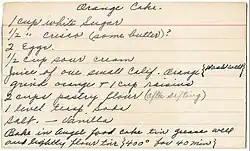 Orange Cake.
1 cup white Sugar
1/2 " crisco (some butter)?
2 Eggs.
1/2 cup sour cream
Juice of one small Calif. Orange {strain well
grind orange + 1 cup raisins
2 cups pastry flour (after sifting)
1 level teasp Soda
Salt. — Vanilla
Bake in angel food cake tin grease well
and lightly flour tin {400° for 40 min}